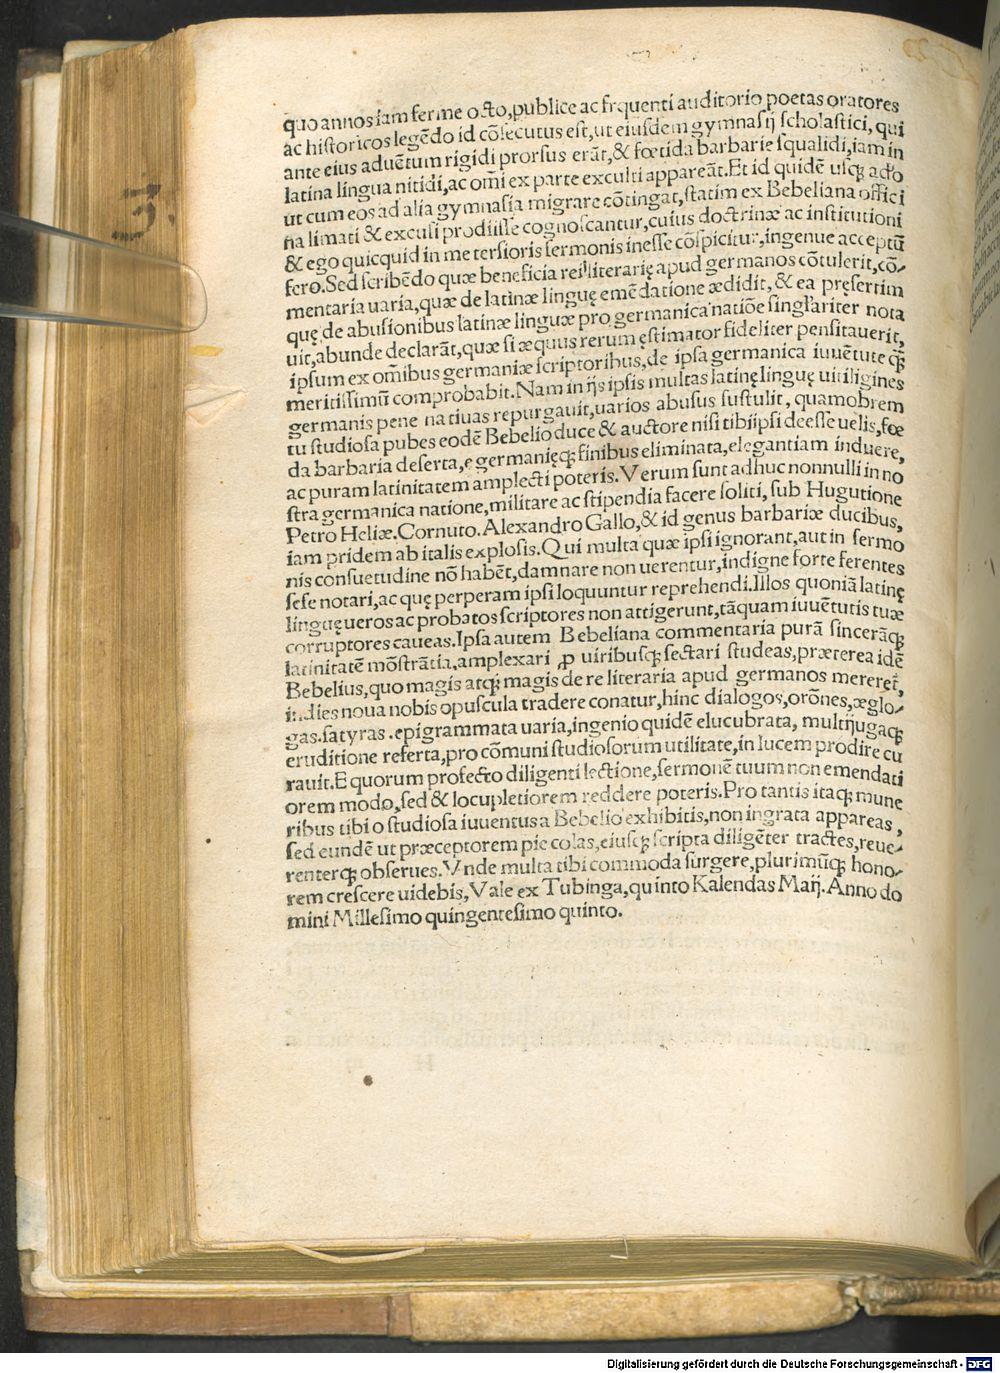 quo annos iam ferme octo, publice ac frquenti auditorio poetas oratores
ac historicos legẽdo id cõsecutus est, ut eiusdem gymnasij scholastici, qui
ante eius aduẽtum rigidi prorsus erãt, & fœtida barbarie squalidi, iam in
latina lingua nitidi, ac om̃i ex parte exculti appareãt. Et id quidẽ usq; adeo
ut cum eos ad alia gymnasia migrare cõtingat, statim ex Bebeliana offici
na limati & exculti prodiisse cognoscantur, cuius doctrinæ ac institutioni
& ego quicquid in me tersioris sermonis inesse cõspicitur, ingenue acceptũ
fero. Sed scribẽdo quæ beneficia rei literarię apud germanos cõtulerit, cõ-
mentaria uaria, quæ de latinæ linguę emẽdatione ædidit, & ea pręsertim
quę de abusionibus latinæ linguæ pro germanica natiõe singlariter nota
uit, abunde declarãt, quæ si æquus rerum ęstimator fideliter pensitauerit,
ipsum ex om̃ibus germaniæ scriptoribus, de ipsa germanica iuuẽtute q̃
meritissimũ comprobabit. Nam in ijs ipsis multas latinę linguę uitiligines
germanis pene natiuas repurgauit, uarios abusus sustulit, quamobrem
tu studiosa pubes eodẽ Bebelio duce & auctore nisi tibiipsi deesse uelis, fœ
da barbaria deserta, e germanięq; finibus eliminata, elegantiam induere,
ac puram latinitatem amplecti poteris. Verum sunt adhuc nonnulli in no
stra germanica natione, militare ac stipendia facere soliti, sub Hugutione
Petro Heliæ. Cornuto. Alexandro Gallo, & id genus barbariæ ducibus,
iam pridem ab italis explosis. Qui multa quæ ipsi ignorant, aut in sermo
nis consuetudine nõ habẽt, damnare non uerentur, indigne forte ferentes
sese notari, ac quę perperam ipsi loquuntur reprehendi. Illos quoniã latinę
linguę ueros ac probatos scriptores non attigerunt, tãquam iuuẽtutis tuæ
corruptores caueas. Ipsa autem Bebeliana commentaria purã sincerãq;
latinitatẽ mõstrãtia, amplexari ꝓ uiribusq; sectari studeas, præterea idẽ
Bebelius, quo magis atq; magis de re literaria apud germanos mereret̃,
indies noua nobis opuscula tradere conatur, hinc dialogos, orõnes, æglo-
gas. satyras. epigrammata uaria, ingenio quidẽ elucubrata, multijugaq;
eruditione referta, pro cõmuni studiosorum utilitate, in lucem prodire cu
rauit. E quorum profecto diligenti lectione, sermonẽ tuum non emendati
orem modo, sed & locupletiorem reddere poteris. Pro tantis itaq; mune
ribus tibi o studiosa iuuentus a Bebelio exhibitis, non ingrata appareas,
sed eundẽ ut præceptorem pie colas, eiusq; scripta diligẽter tractes, reue-
renterq; obserues. Vnde multa tibi commoda surgere, plurimũq; hono-
rem crescere uidebis, Vale ex Tubinga, quinto Kalendas Marij. Anno do
mini Millesimo quingentesimo quinto.
Digitalisierung gefördert durch die Deutsche Forschungsgemeinschaft - DFG